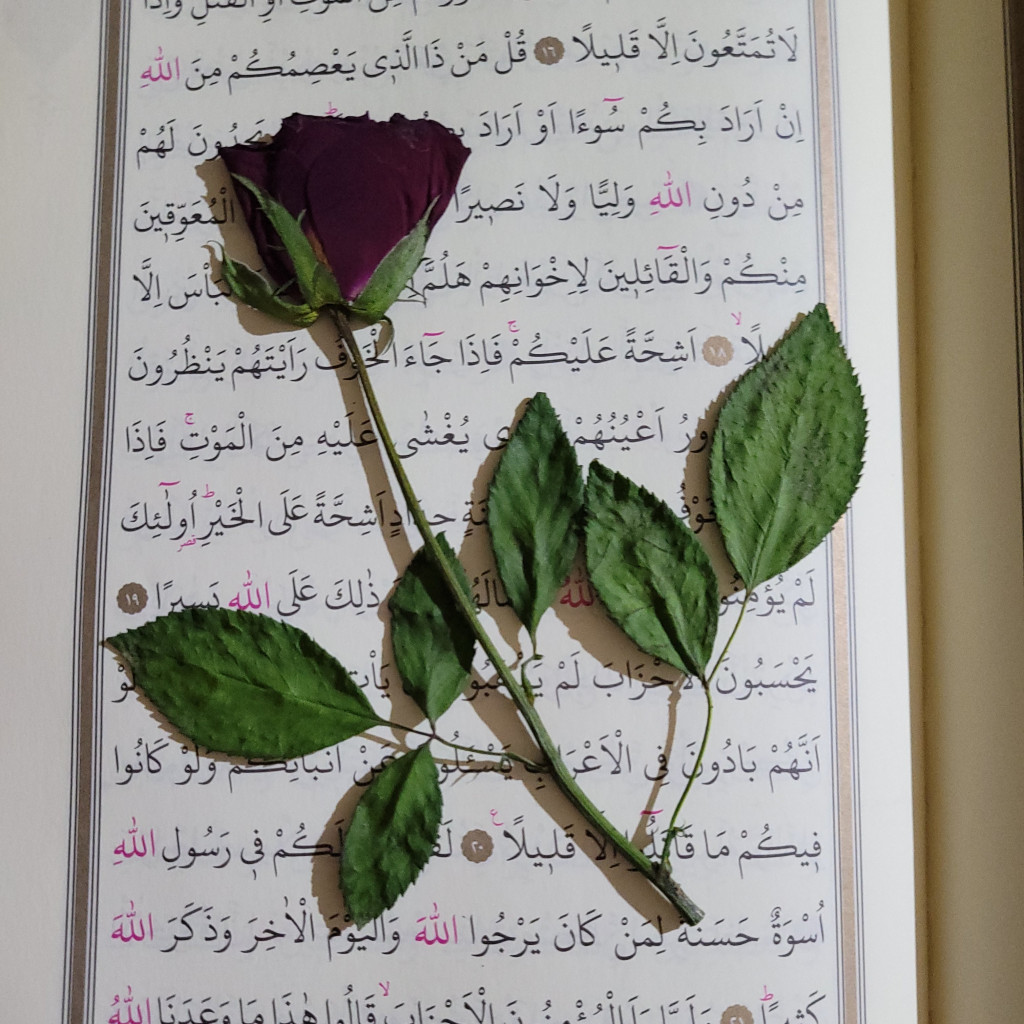 لَا تُمَتَّعُونَ اِلَّا قَلِيلًا ١٦ قُلْ مَنْ ذَا الَّذِى يَعْصِمُكُمْ مِنَ اللّٰهِ
اِنْ اَرَادَ بِكُمْ سُٓوءًا اَوْ اَرَادَ لَهُمْ
مِنْ دُونِ اللّٰهِ وَلِيًّا وَلَا نَصِيرًا الْمُعَوِّقِينَ
مِنْكُمْ وَالْقَٓائِلِينَ لِاِخْوَانِهِمْ هَلُمَّ اِلَّا
١٨ اَشِحَّةً عَلَيْكُمْ ۚ فَاِذَا جَٓاءَ الْخَوْفُ رَاَيْتَهُمْ يَنْظُرُونَ
اَعْيُنُهُمْ يُغْشٰى عَلَيْهِ مِنَ الْمَوْتِ ۚ فَاِذَا
اَشِحَّةً عَلَى الْخَيْرِ ۜ اُو۬لٰٓئِكَ
لَمْ يُؤْمِنُوا اللّٰهُ ذٰلِكَ عَلَى اللّٰهِ يَسِيرًا ١٩
يَحْسَبُونَ الْاَحْزَابَ لَمْ
اَنَّهُمْ بَادُونَ فِى الْاَعْرَابِ يَسْئَلُونَ عَنْ اَنْبَائِكُمْ وَلَوْ كَانُوا
فِيكُمْ مَا قَاتَلُٓوا اِلَّا قَلِيلًا ٢٠ لَكُمْ فِى رَسُولِ اللّٰهِ
اُسْوَةٌ حَسَنَةٌ لِمَنْ كَانَ يَرْجُوا اللّٰهَ وَالْيَوْمَ الْاٰخِرَ وَذَكَرَ اللّٰهَ
كَثِيرًا ٢١ الْاَحْزَابَ ۙ قَالُوا هٰذَا مَا وَعَدَنَا اللّٰهُ